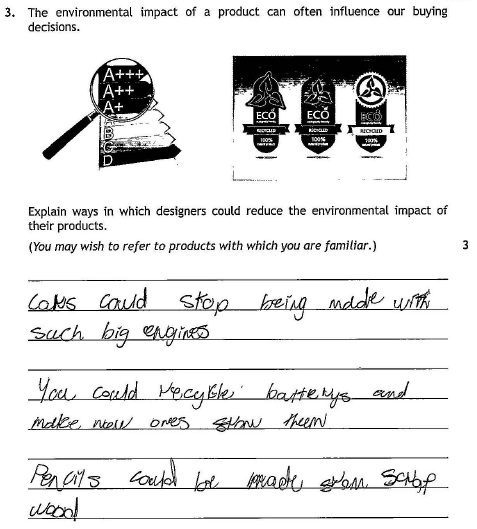 3. The environmental impact of a product can often influence our buying
decisions.
A+++
A++
A+
B
C
D
ECO
RECYCLED
100%
ECO
RECYCLED
100%
ECO
RECYCLED
100%
Explain ways in which designers could reduce the environmental impact of
their products.
(You may wish to refer to products with which you are familiar.) 3
Cars could stop being made with
such big engines
You could recykle batterys and
make new ones from them
Pencils could be made from scrap
wood